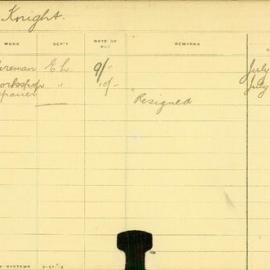 Knight.
WORK DEP'T RATE OF PAY REMARKS
Fireman E.L. 9/- July
Workshop " 10/- July
Resigned